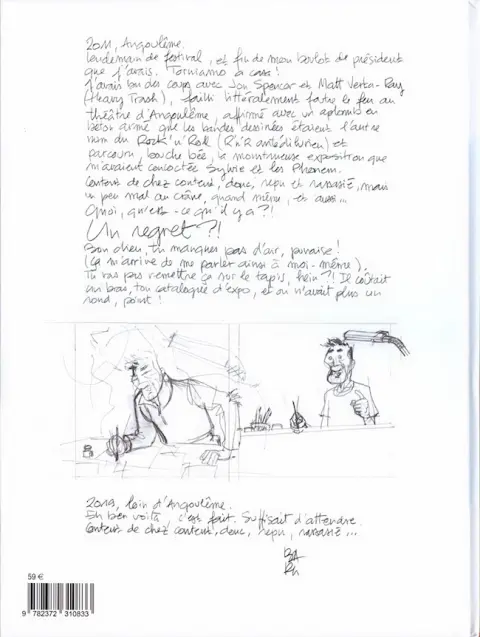 2011, Angoulême.
Lendemain de festival, et fin de mon boulot de président
que j'avais. Torniamo a casa!
J'avais bu des coups avec Jon Spencer et Matt Verta-Ray
(Heavy Trash), failli littéralement foutre le feu au
théâtre d'Angoulême, affirmé avec un aplomb en
béton armé que les bandes dessinées étaient l'autre
nom du Rock'n'Roll (R'n'R antédiluvien) et
parcouru, bouche bée, la monstrueuse exposition que
m'avaient concoctée Sylvie et les Phonem.
Content de chez content, donc, repu et rassasié, mais
un peu mal au crâne, quand même, et aussi...
Quoi, qu'est-ce qu'il y a?!
Un regret?!
Bon dieu, tu manques pas d'air, punaise!
(ça m'arrive de me parler ainsi à moi-même).
Tu vas pas remettre ça sur le tapis, hein?! Il coûtait
un bras, ton catalogue d'expo, et on n'avait plus un
rond, point!
2019, loin d'Angoulême.
Eh ben voilà, c'est fait. Suffisait d'attendre.
Content de chez content, donc, repu, rassasié...
BA
RU
59 €
9 782372 310833